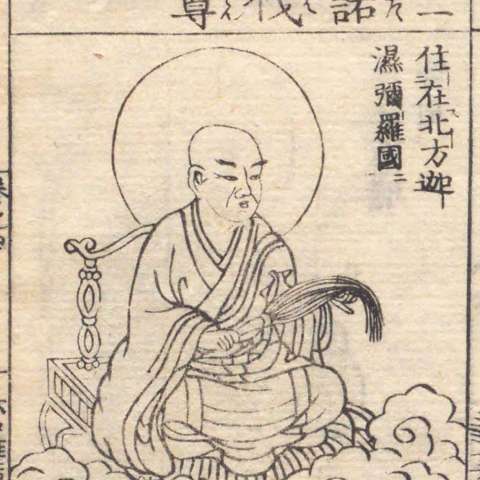 二
諾
伐
尊
住在北方迦
濕彌羅國